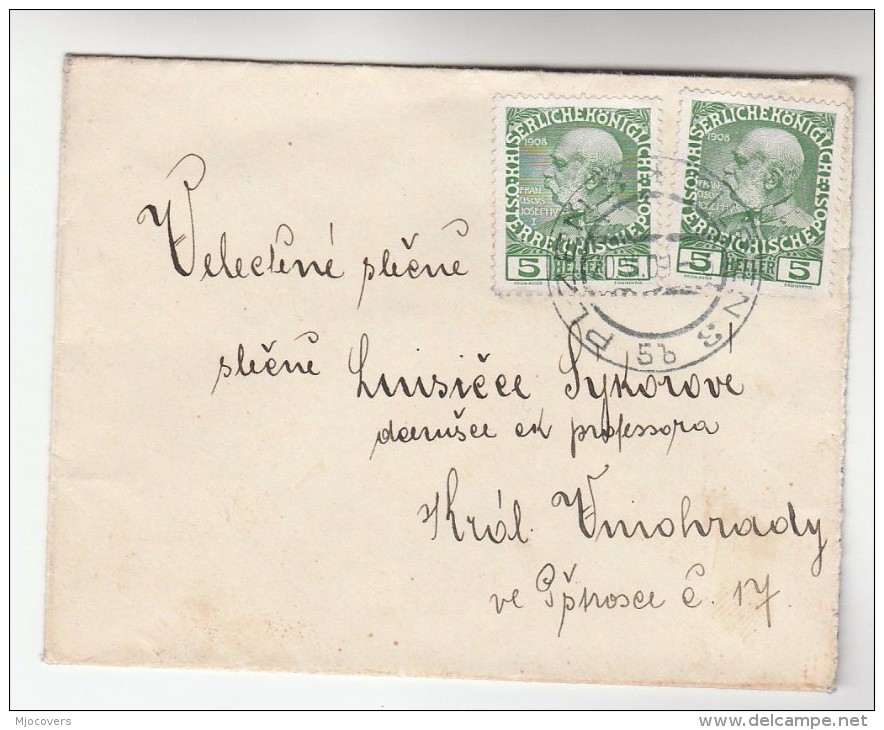 KAISERLICHEKÖNIGLICHE ÖSTERREICHISCHE POST
1908
FRAN
CISCVS
JOSEPHVS
I
5 HELLER 5
KAISERLICHEKÖNIGLICHE ÖSTERREICHISCHE POST
1908
5 HELLER 5
5b
Velectěné slečně
slečně Luisičce Sykorové
dcerušce ck professora
Král. Vinohrady
ve Pštrosce č. 17.
Mjocovers
delcampe.net